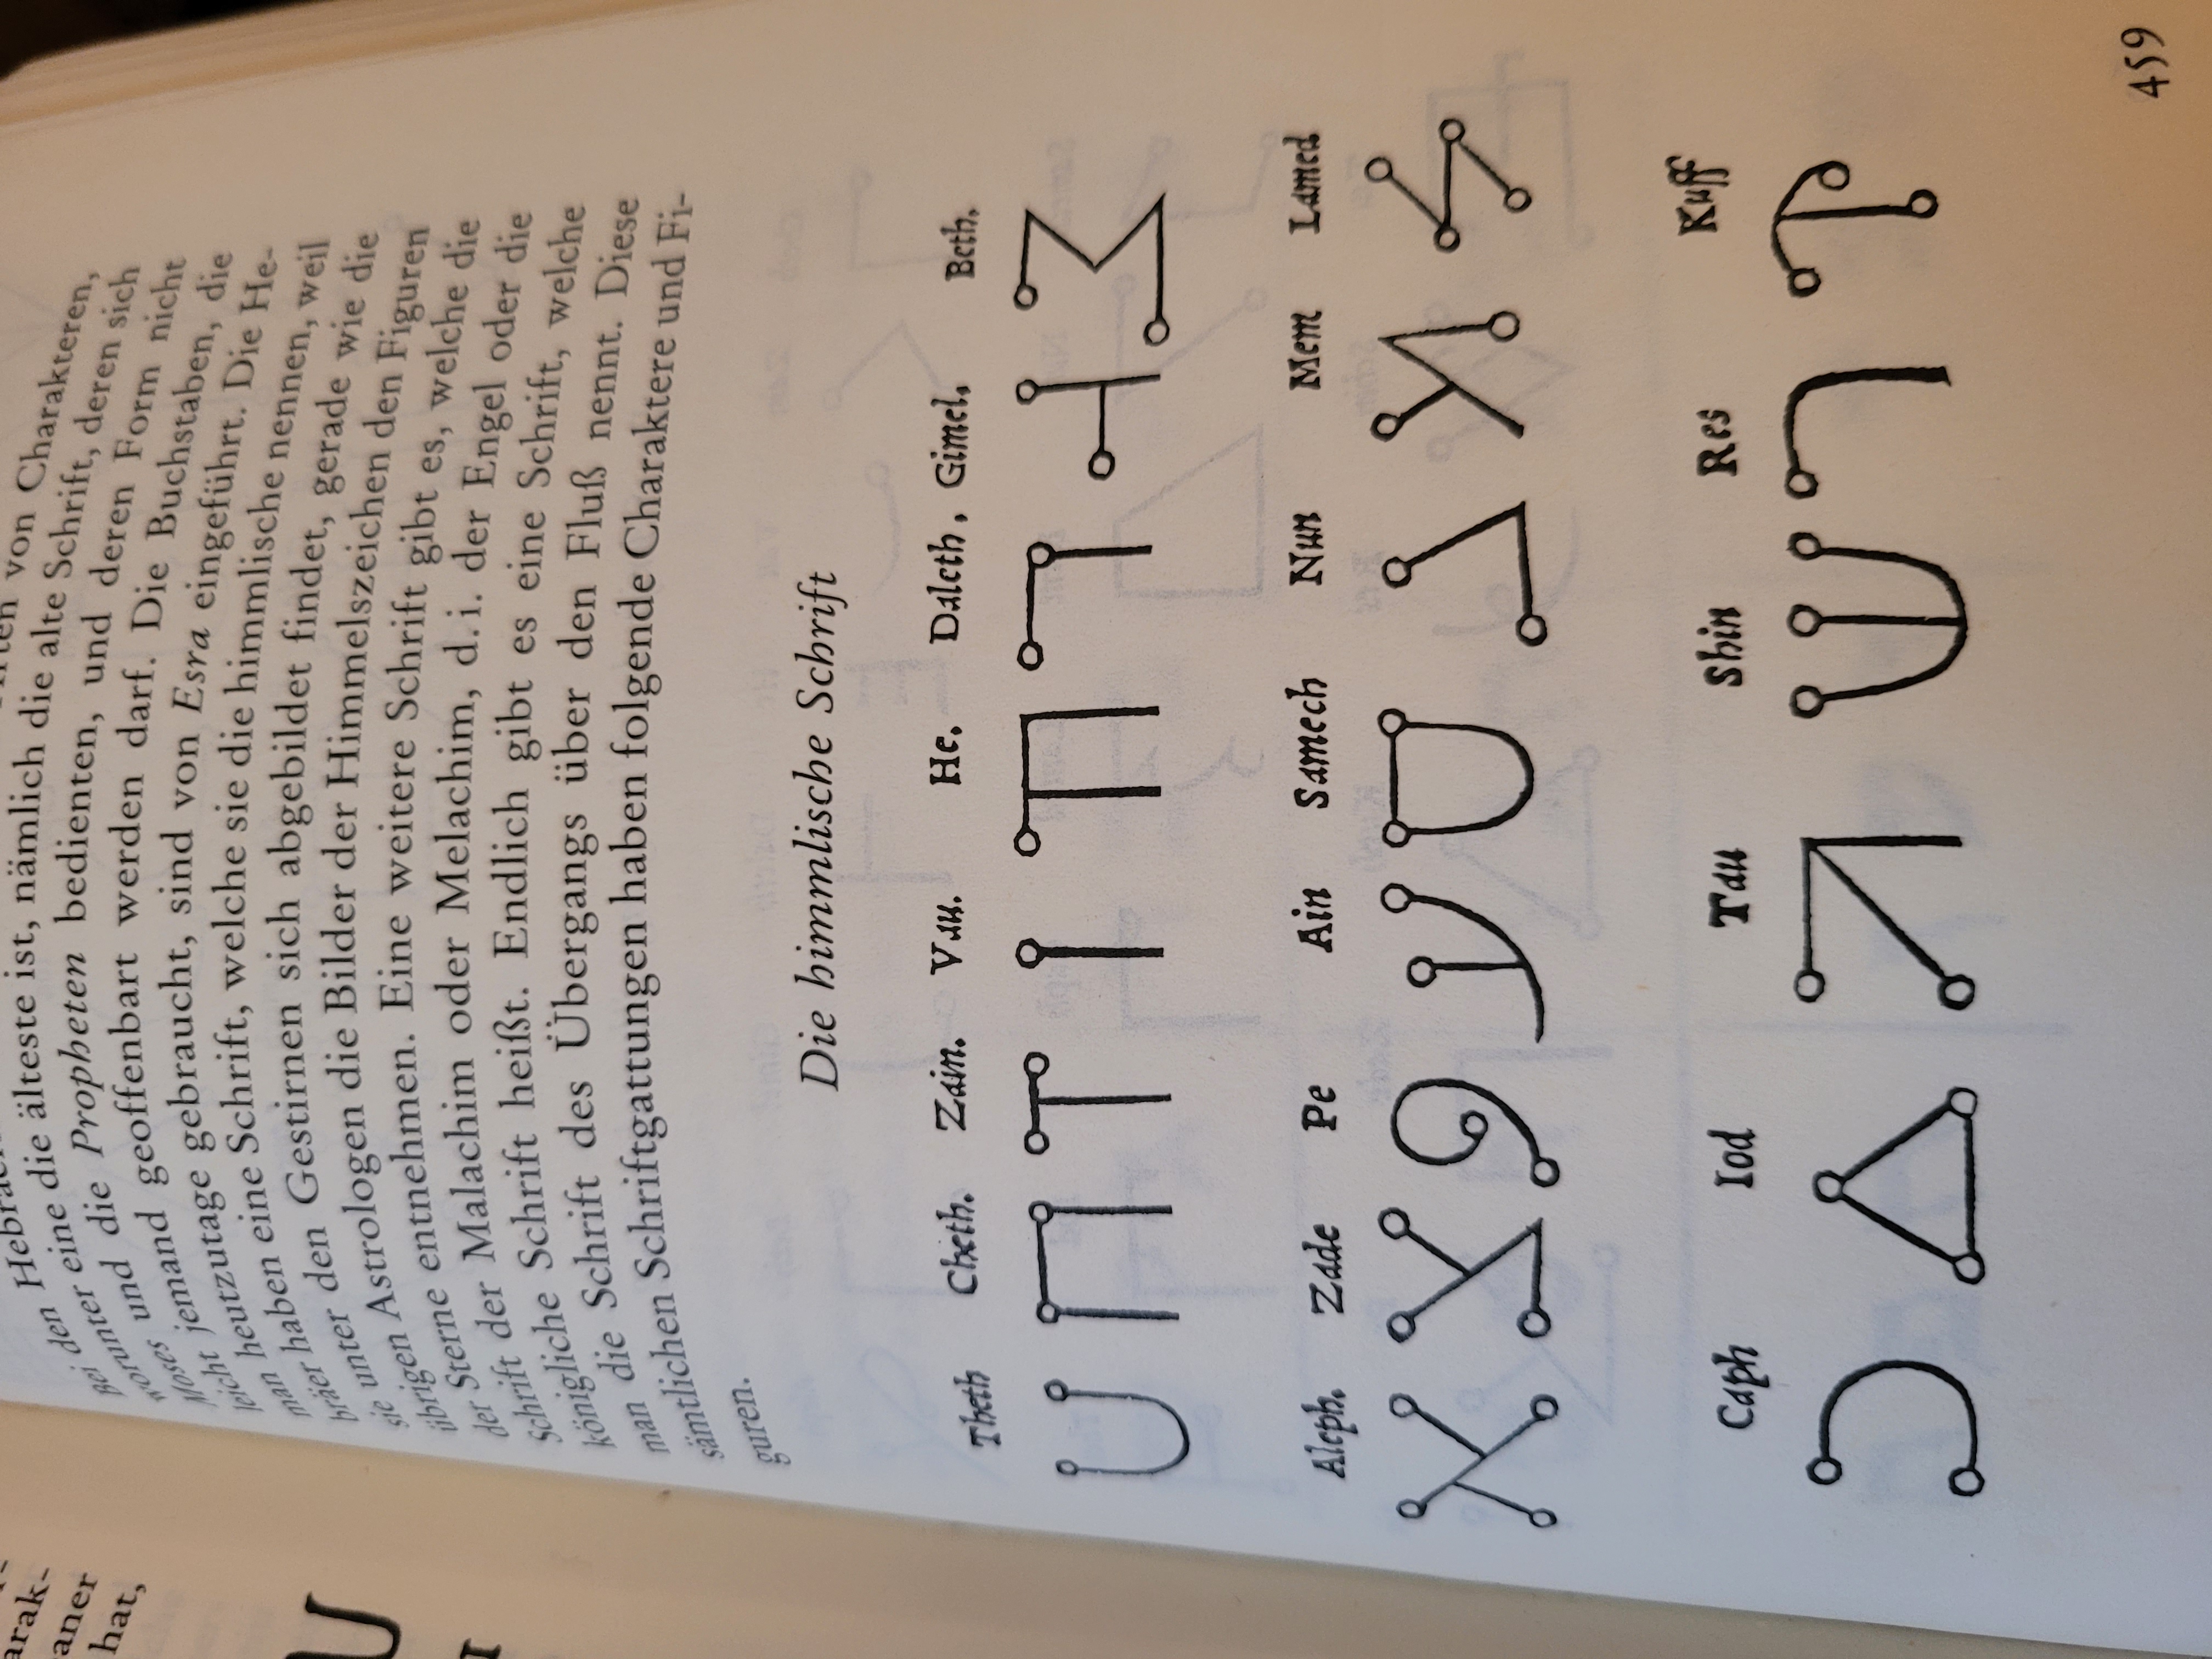 bei den Hebräern
den Hebrä
von Charakteren,
den eine die älteste ist, nämlich die alte Schrift, deren sich
worunter die Propheten bedienten, und deren Form nicht
Moses und geoffenbart werden darf. Die Buchstaben, die
leicht jemand gebraucht, sind von Esra eingeführt. Die He-
man heutzutage eine Schrift, welche sie die himmlische nennen, weil
bräer haben den Gestirnen sich abgebildet findet, gerade wie die
sie unter Astrologen die Bilder der Himmelszeichen den Figuren
übrigen Sterne entnehmen. Eine weitere Schrift gibt es, welche die
der Schrift der Malachim oder Melachim, d. i. der Engel oder die
königliche Schrift heißt. Endlich gibt es eine Schrift, welche
man die Schrift des Übergangs über den Fluß nennt. Diese
sämtlichen Schriftgattungen haben folgende Charaktere und Fi-
guren.
Die himmlische Schrift
Theth Cheth. Zain. Vau. He. Daleth, Gimel, Beth.
Aleph. Zade Pe Ain Samech Nun Mem Lamed
Caph Iod Tau Shin Res Kuff
459
arak-
aner
hat,